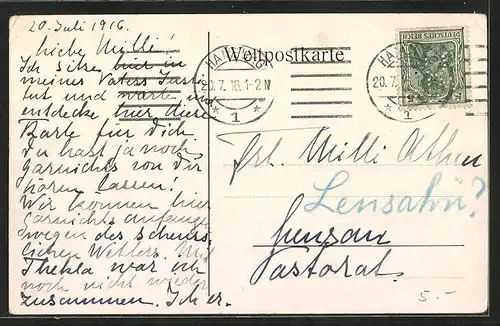 20. Juli 1916.
Liebe Milli!
Ich sitze hier in
meines Vaters Insti-
tut und warte und
entdecke hier diese
Karte für Dich.
Du hast ja noch
garnichts von dir
hören lassen!
Wir konnen hier
garnichts anfangen
wegen des scheuss-
lichen Wetters. Mit
Thekla war ich
noch nicht wieder
zusammen.
Weltpostkarte
20.7.16.1-2N
* 1 *
20.7.
1
DEUTSCHES REICH
Frl. Milli
Lensahn?
Pastorat.
5.-